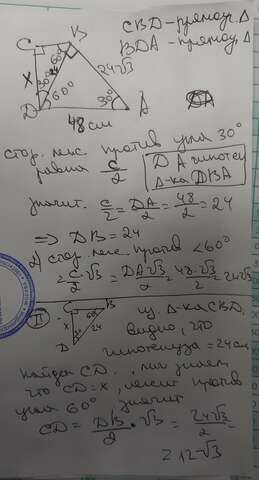 CBD - прямоуг. Δ
BDA - прямоуг. Δ
C B
60°
24√3
X
30°
60°
30°
D A
48 см
стор. леж. против угла 30°
равна c/2
DA гипотен.
Δ-ка DBA
значит. c/2 = DA/2 = 48/2 = 24
⇒ DB = 24
2) стор леж. против <60°
= c/2 √3 = DA√3/2 = 48·√3/2 = 24√3
II
C B
60°
X
24
D
из Δ-ка CBD,
видно, что
гипотенуза = 24 см
найдем CD, мы знаем,
что CD = x, лежит против
угла 60° значит
CD = DB/2 · √3 = 24√3/2 =
= 12√3